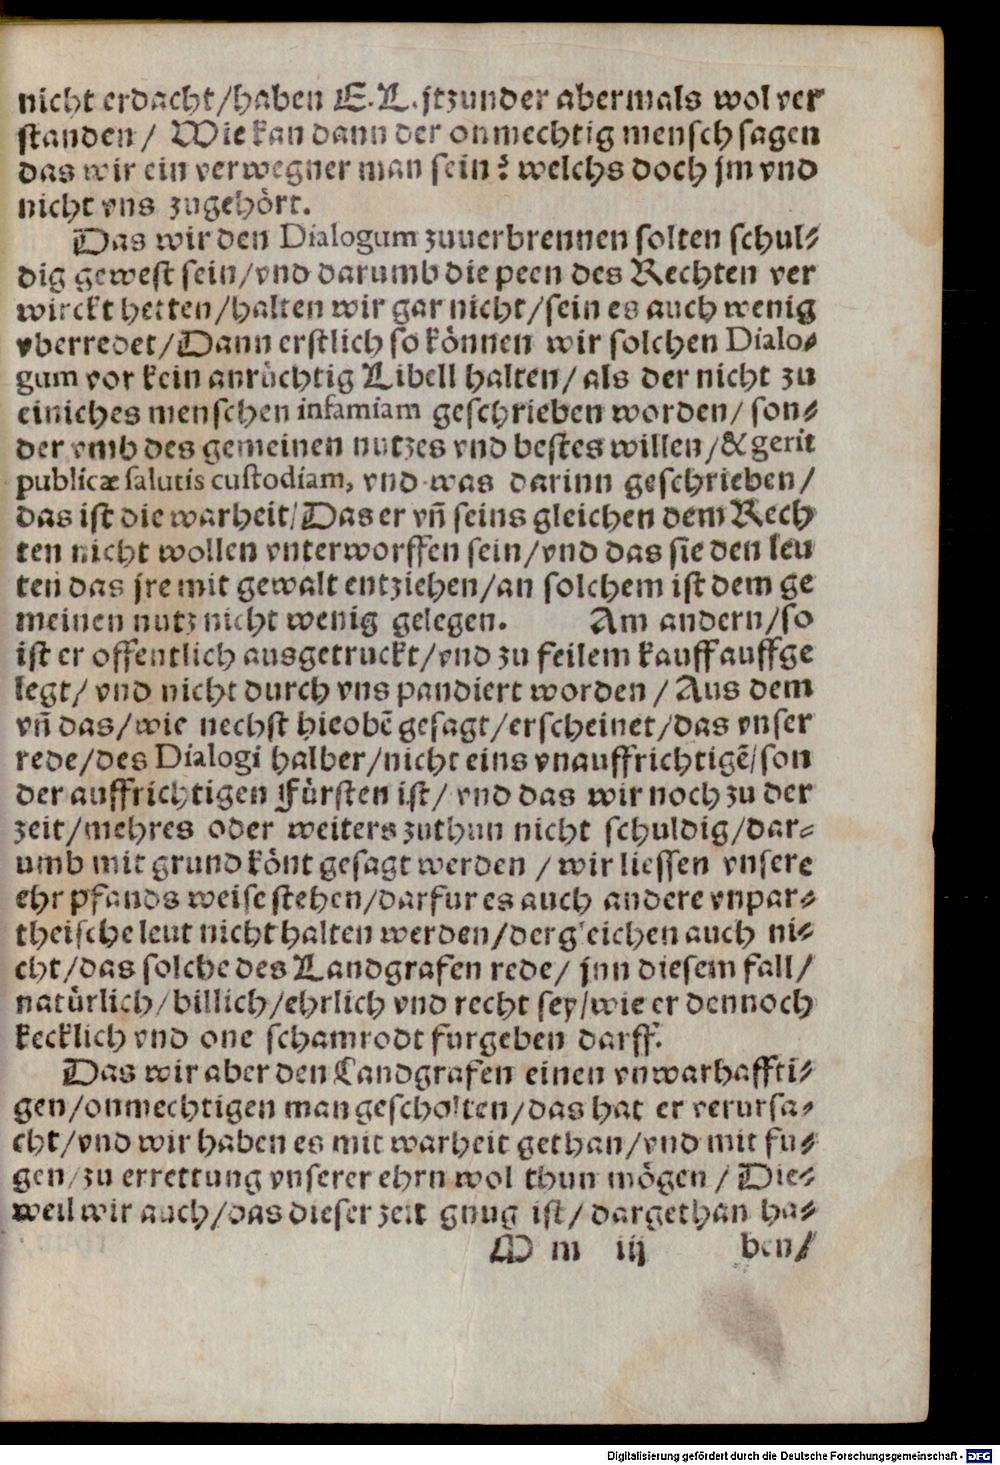 nicht erdacht/haben E.L.jtzunder abermals wol ver
standen/ Wie kan dann der onmechtig mensch sagen
das wir ein verwegner man sein? welchs doch jm vnd
nicht vns zugehört.
Das wir den Dialogum zuuerbrennen solten schul⸗
dig gewest sein/vnd darumb die peen des Rechten ver
wirckt hetten/halten wir gar nicht/sein es auch wenig
vberredet/Dann erstlich so können wir solchen Dialo⸗
gum vor kein anrüchtig Libell halten/als der nicht zu
einiches menschen infamiam geschrieben worden/ son⸗
der vmb des gemeinen nutzes vnd bestes willen/& gerit
publicæ salutis custodiam, vnd was darinn geschrieben/
das ist die warheit/Das er vñ seins gleichen dem Rech
ten nicht wollen vnterworffen sein/vnd das sie den leu
ten das jre mit gewalt entziehen/an solchem ist dem ge
meinen nutz nicht wenig gelegen. Am andern/so
ist er offentlich ausgetruckt/vnd zu feilem kauff auffge
legt/ vnd nicht durch vns pandiert worden/ Aus dem
vñ das/wie nechst hieobē gesagt/erscheinet/das vnser
rede/des Dialogi halber/nicht eins vnauffrichtigē/son
der auffrichtigen Fürsten ist/ vnd das wir noch zu der
zeit/mehres oder weiters zuthun nicht schuldig/dar⸗
umb mit grund könt gesagt werden / wir liessen vnsere
ehr pfands weise stehen/darfur es auch andere vnpar⸗
theische leut nicht halten werden/dergleichen auch ni⸗
cht/das solche des Landgrafen rede/ jnn diesem fall/
natürlich/billich/ehrlich vnd recht sey/wie er dennoch
kecklich vnd one schamrodt furgeben darff.
Das wir aber den Landgrafen einen vnwarhaffti⸗
gen/onmechtigen man gescholten/das hat er verursa⸗
cht/vnd wir haben es mit warheit gethan/vnd mit fu⸗
gen/zu errettung vnserer ehrn wol thun mögen/ Die⸗
weil wir auch/das dieser zeit gnug ist/ dargethan ha⸗
M m iij ben/
Digitalisierung gefördert durch die Deutsche Forschungsgemeinschaft - DFG